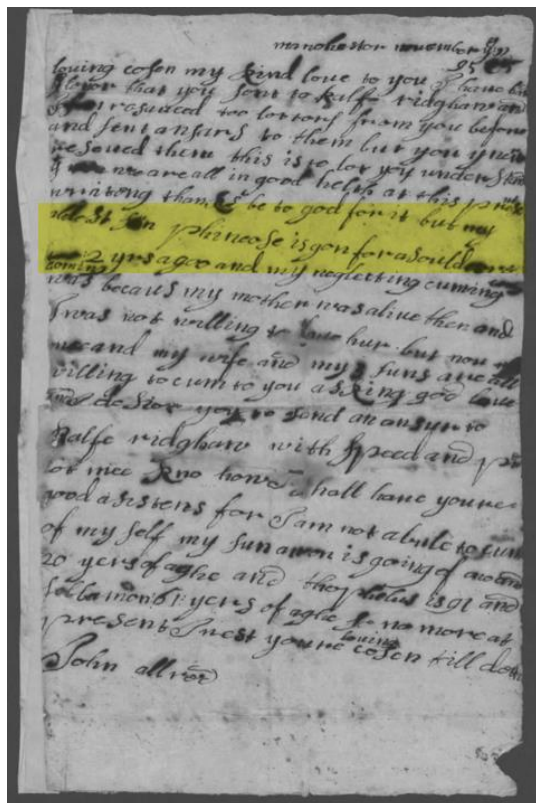 manchester november ye
loving cosen my kind love to you I have
that you sent to Ralfe ridghaw and
resaued too lottors from you before
and sent ansars to them but you
resaued them this is to lot you under
wee are all in good helth at this
writtong thanks be to god for it but my
aldest sun phineose is gon for a souldeare
2 yrs agoo and my neglecting cuming
was becaus my mother was alive then and
I was not willing to leave hur but now
mee and my wife and my 3 suns are all
willing to cum to you asking god
and desire you to send an ansur to
Ralfe ridghaw with speed and
lot mee kno how I shall have youre
good asistens for I am not abule to cum
of my self my sun aron is going of
20 yers of aghe and thophelus is 91 and
sollamon 61 yers of aghe so no more at
present I rest youre loving cosen till
John allred